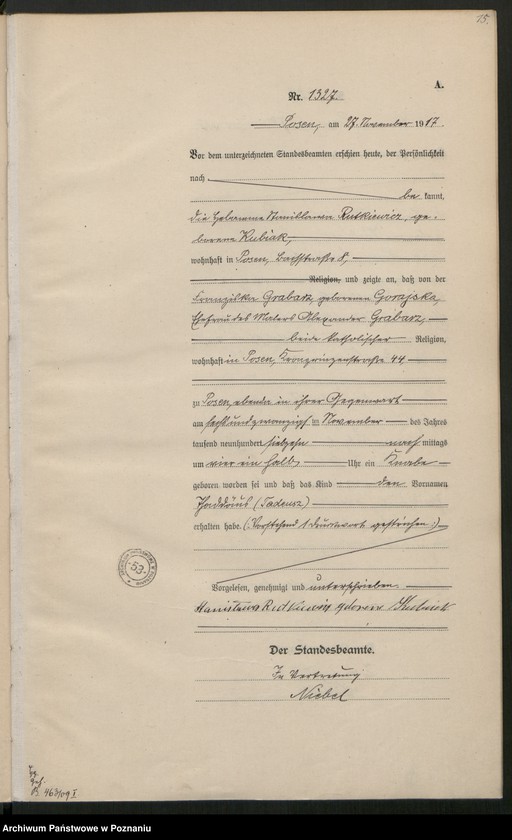 15.
A.
Nr. 1327.
Posen, am 27. November 1917.
Vor dem unterzeichneten Standesbeamten erschien heute, der Persönlichkeit
nach
be kannt,
die Hebamme Stanislawa Rutkiewicz, ge-
borene Kubiak,
wohnhaft in Posen, Bachstraße 8,
Religion, und zeigte an, daß von der
Franziska Grabarz, geborenen Gorajska,
Ehefrau des Malers Alexander Grabarz,
beide katholischer Religion,
wohnhaft in Posen, Kronprinzenstraße 44
zu Posen, ebenda in ihrer Gegenwart
am sechsundzwanzigsten November des Jahres
tausend neunhundert siebzehn nach mittags
um vier ein halb Uhr ein Knabe
geboren worden sei und daß das Kind den Vornamen
Thaddäus (Tadeusz)
erhalten habe. (Vorstehend 1 Druckwort gestrichen.)
Vorgelesen, genehmigt und unterschrieben.
Stanislawa Rutkiewicz geborene Kubiak
Der Standesbeamte.
In Vertretung
Niebel
53
463/09 I
Archiwum Państwowe w Poznaniu